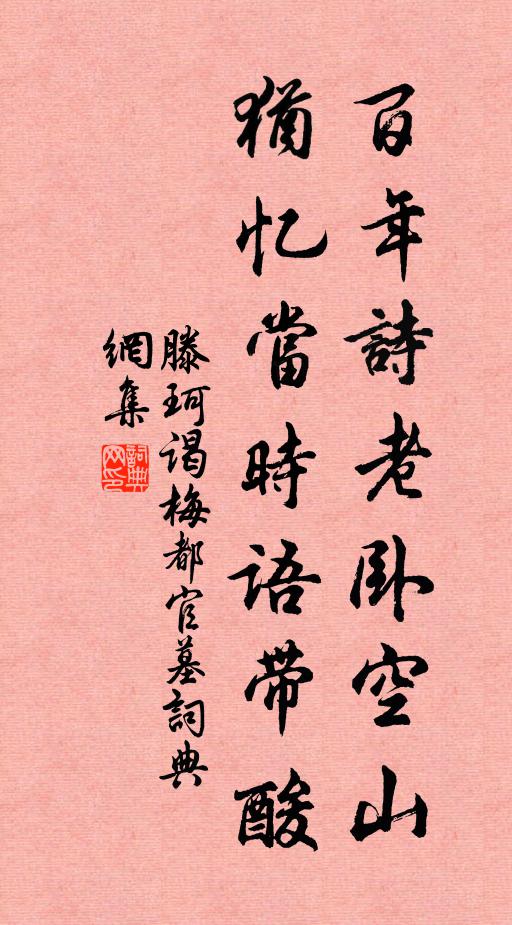 百年詩老卧空山
猶忆當時语带酸
滕珂谒梅都官墓詞典
網集
詞典网印